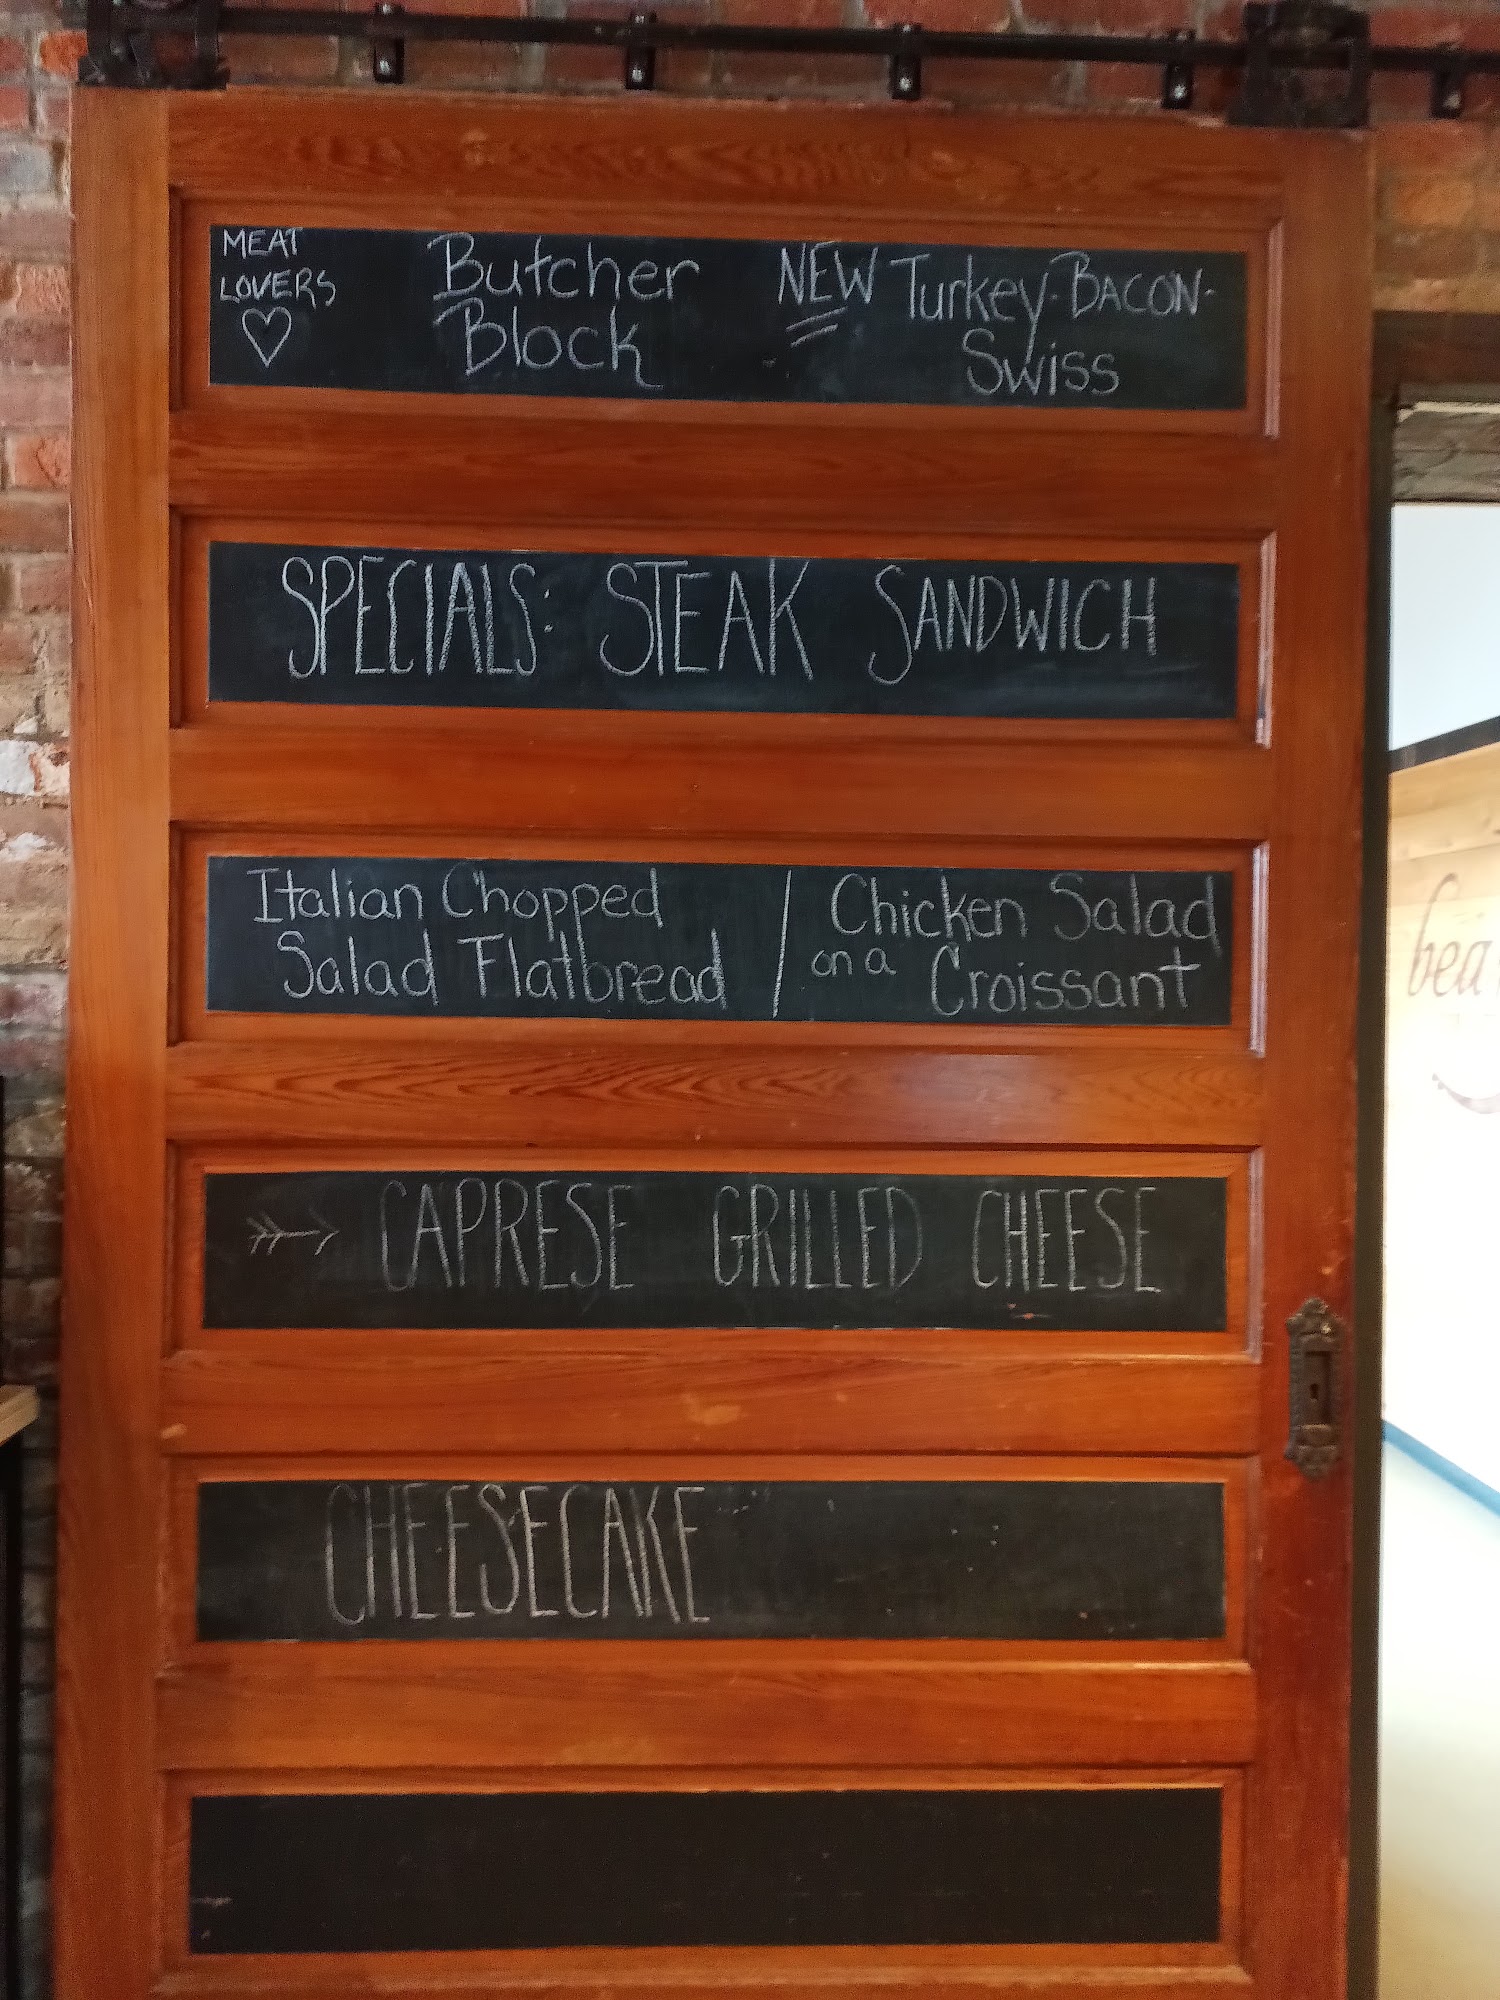 MEAT
LOVERS
Butcher
Block
NEW Turkey-BACON-
Swiss
SPECIALS: STEAK SANDWICH
Italian Chopped
Salad Flatbread
/
Chicken Salad
on a Croissant
CAPRESE GRILLED CHEESE
CHEESECAKE